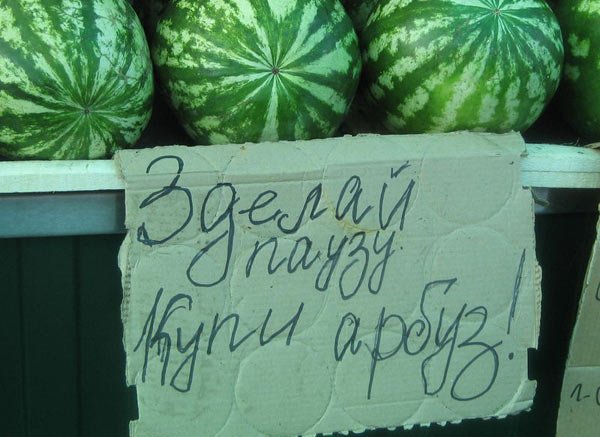 Зделай
паузу
Купи арбуз!